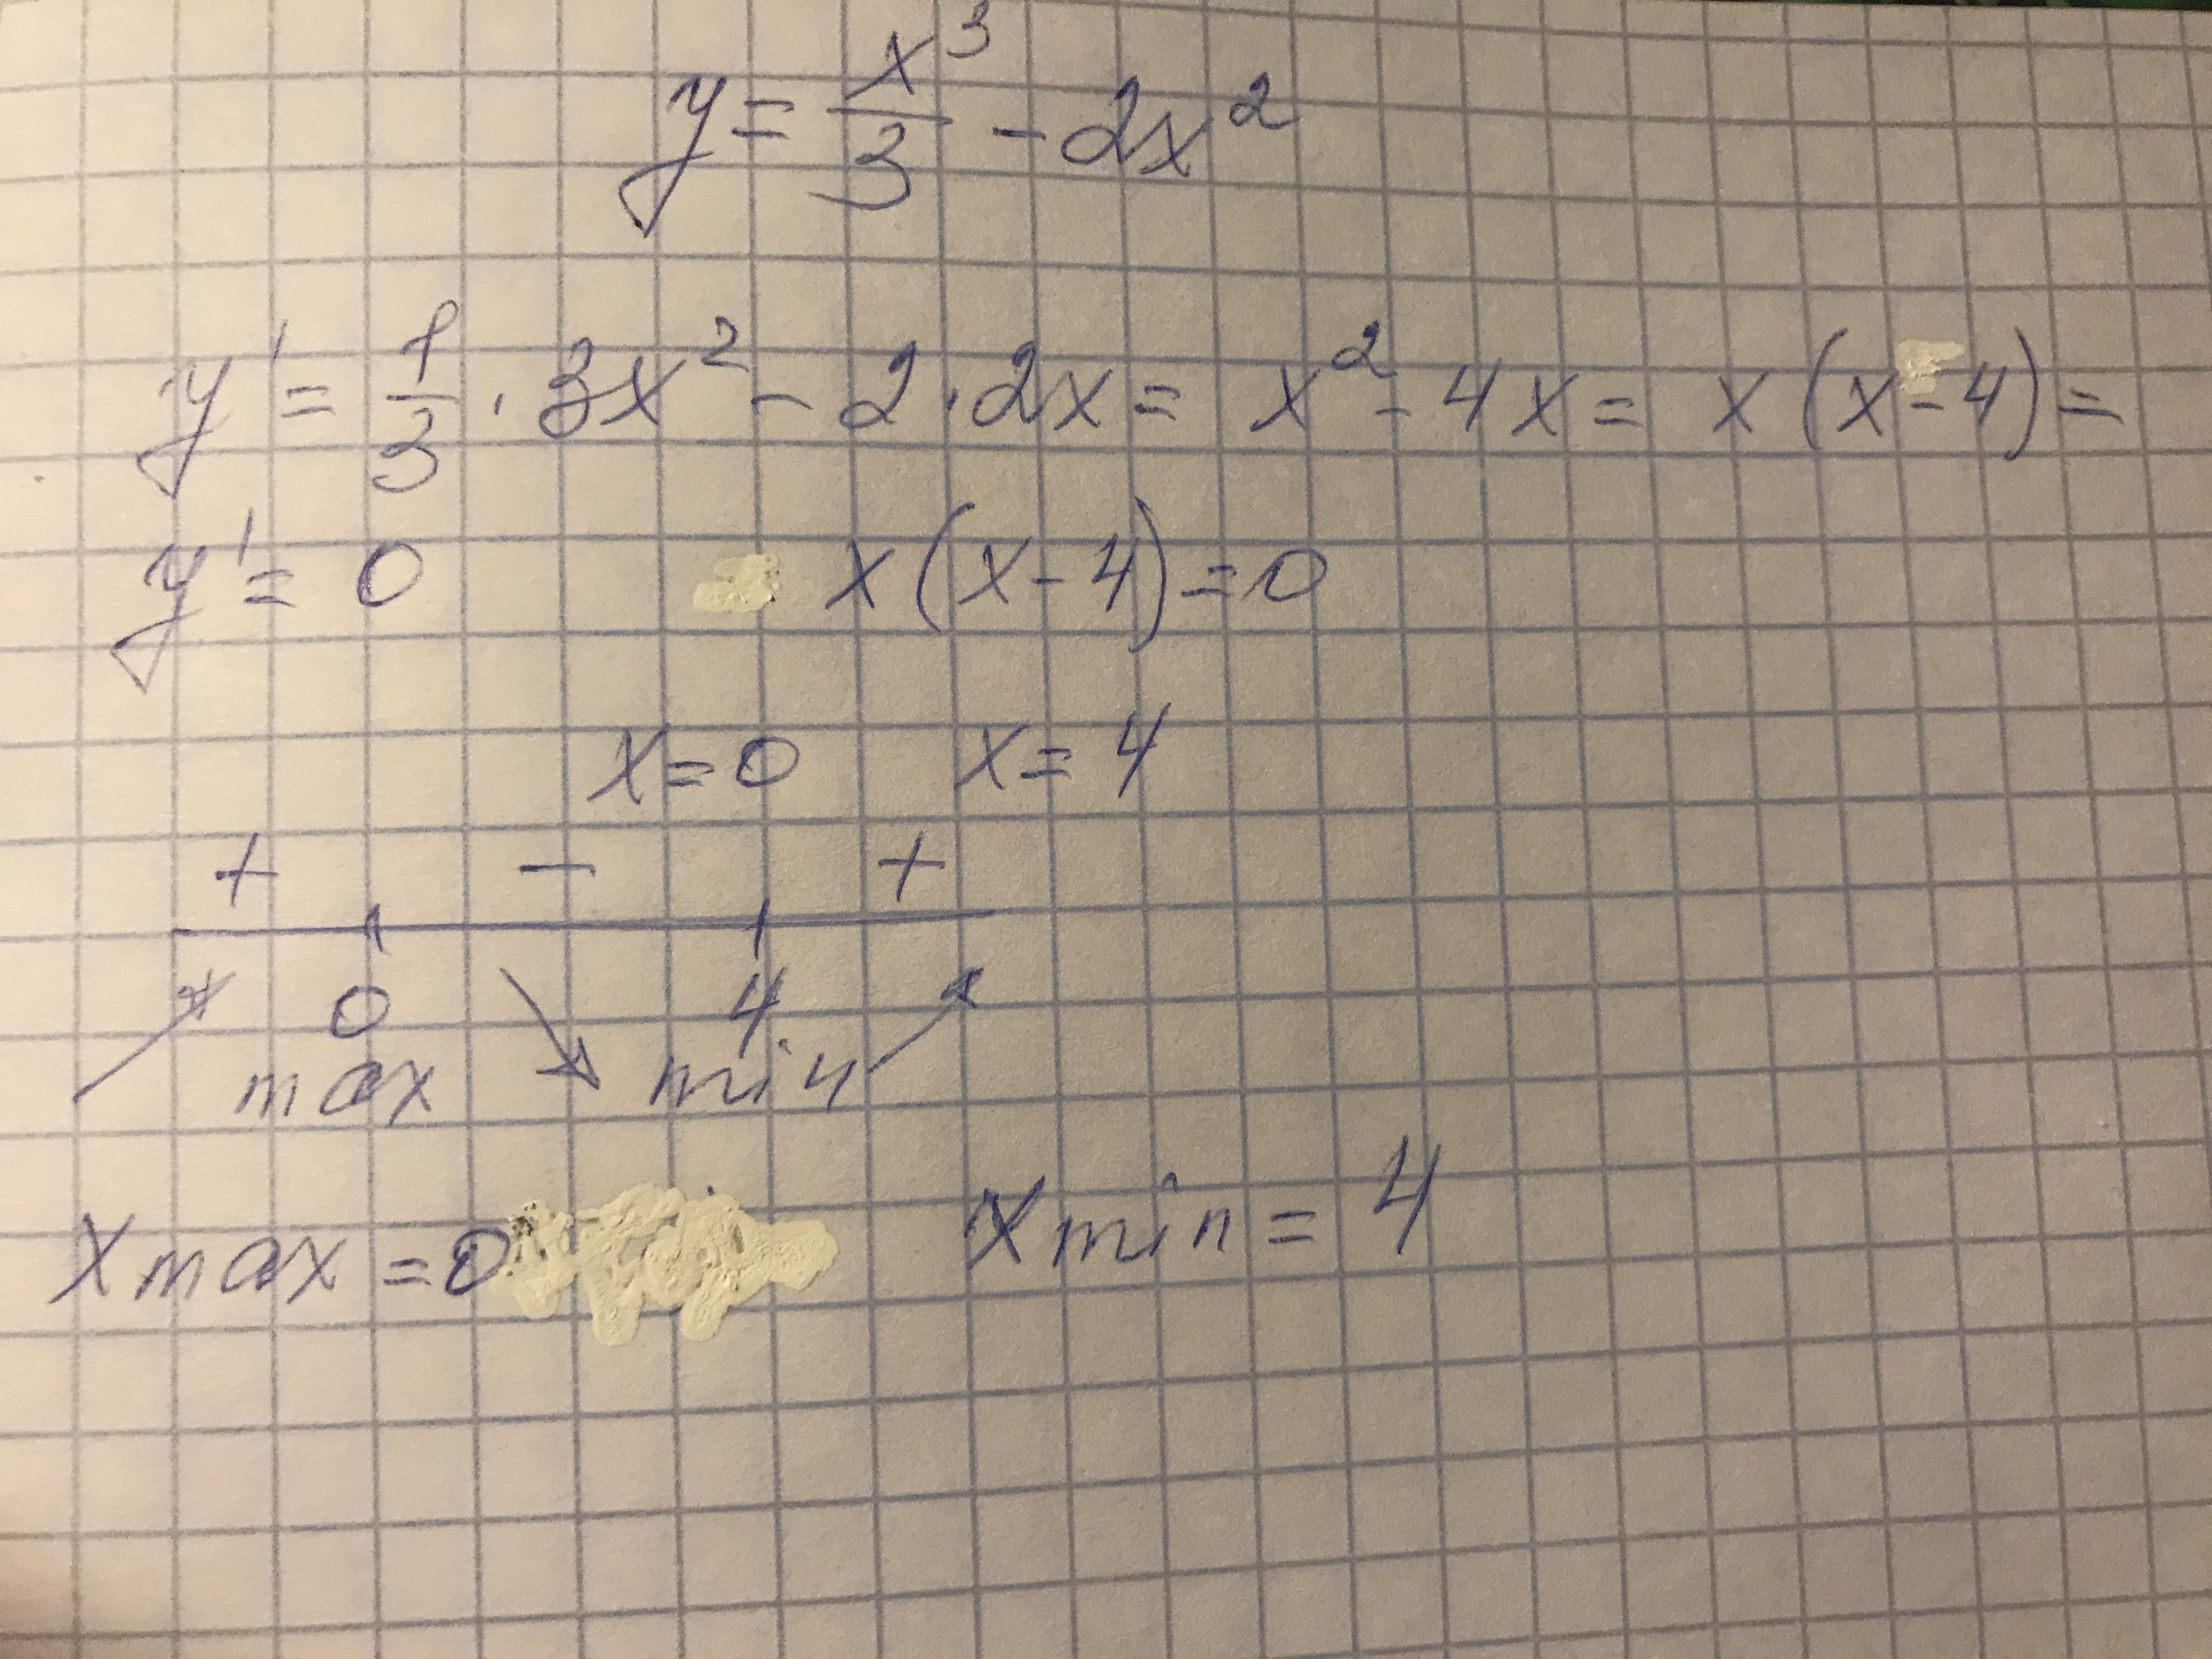 y = x³/3 - 2x²
y' = 1/3 · 3x² - 2 · 2x = x² - 4x = x(x-4) =
y' = 0 x(x-4) = 0
x = 0 x = 4
+ - +
0 4
max min
x max = 0 x min = 4